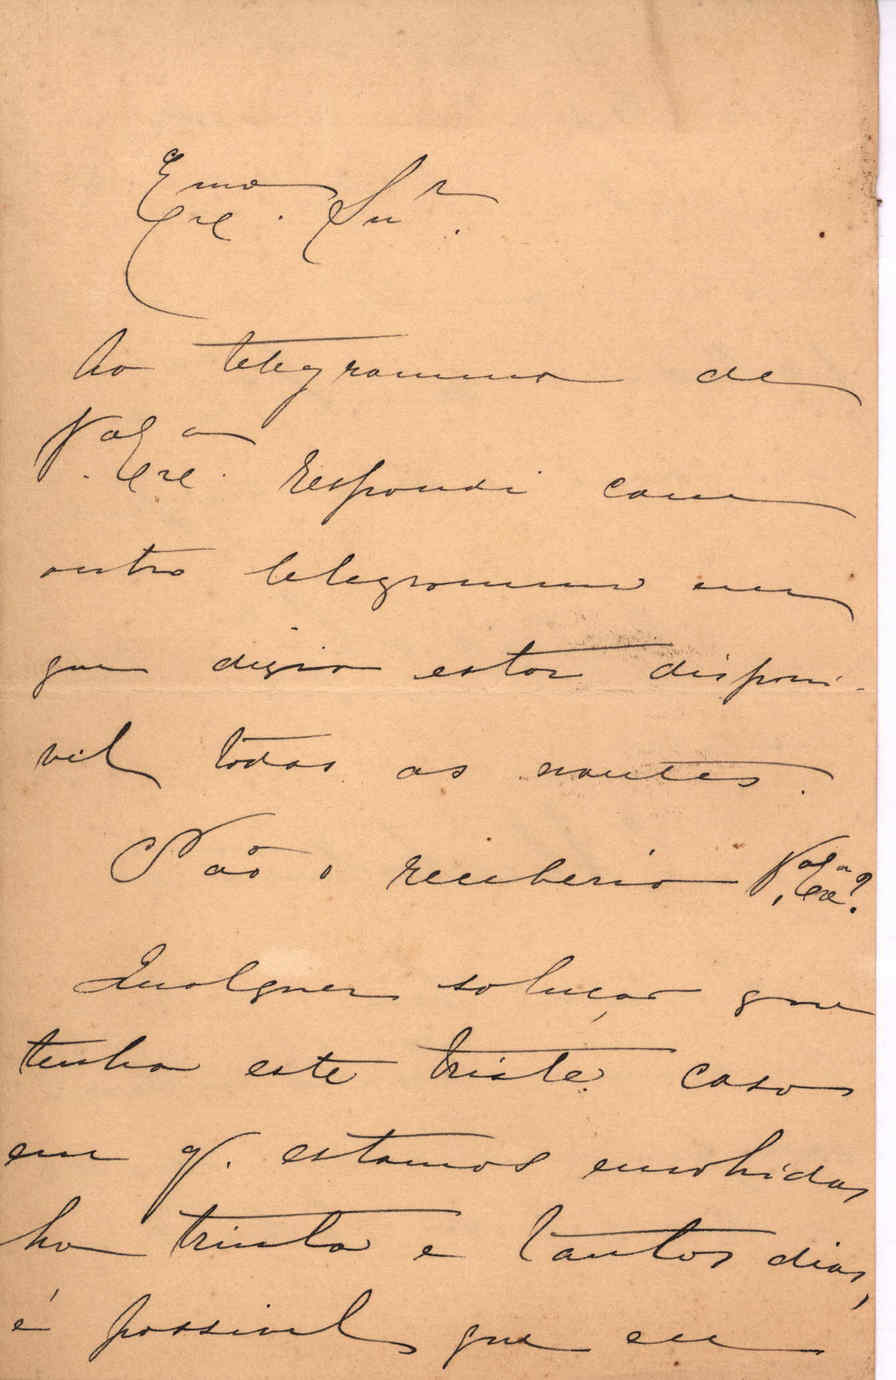 Exmo
Exc. Snr.
Ao telegramma de
V. Excia. respondi com
outro telegramma em
que dizia estar disponi-
vel todas as noutes.
Não o receberia V. Excia?
Qualquer solução que
tenha este triste caso
em q. estamos envolvidas
ha trinta e tantos dias,
é possivel que eu